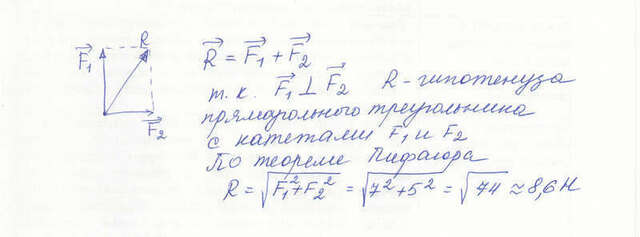 F₁ R F₂
R = F₁ + F₂
т.к. F₁ ⊥ F₂ R - гипотенуза
прямоугольного треугольника
с катетами F₁ и F₂
По теореме Пифагора
R = √F₁² + F₂² = √7² + 5² = √74 ≈ 8,6 Н